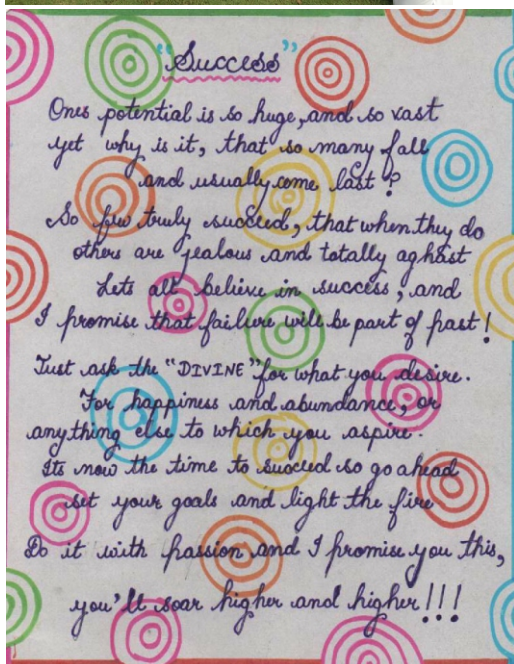 "Success"
Ones potential is so huge, and so vast
yet why is it, that so many fall
and usually come last?
So few truly succeed, that when they do
others are jealous and totally aghast
Lets all believe in success, and
I promise that failure will be part of past!
Just ask the "DIVINE" for what you desire.
For happiness and abundance, or
anything else to which you aspire.
Its now the time to succeed so go ahead
set your goals and light the fire
Do it with passion and I promise you this,
you'll soar higher and higher!!!